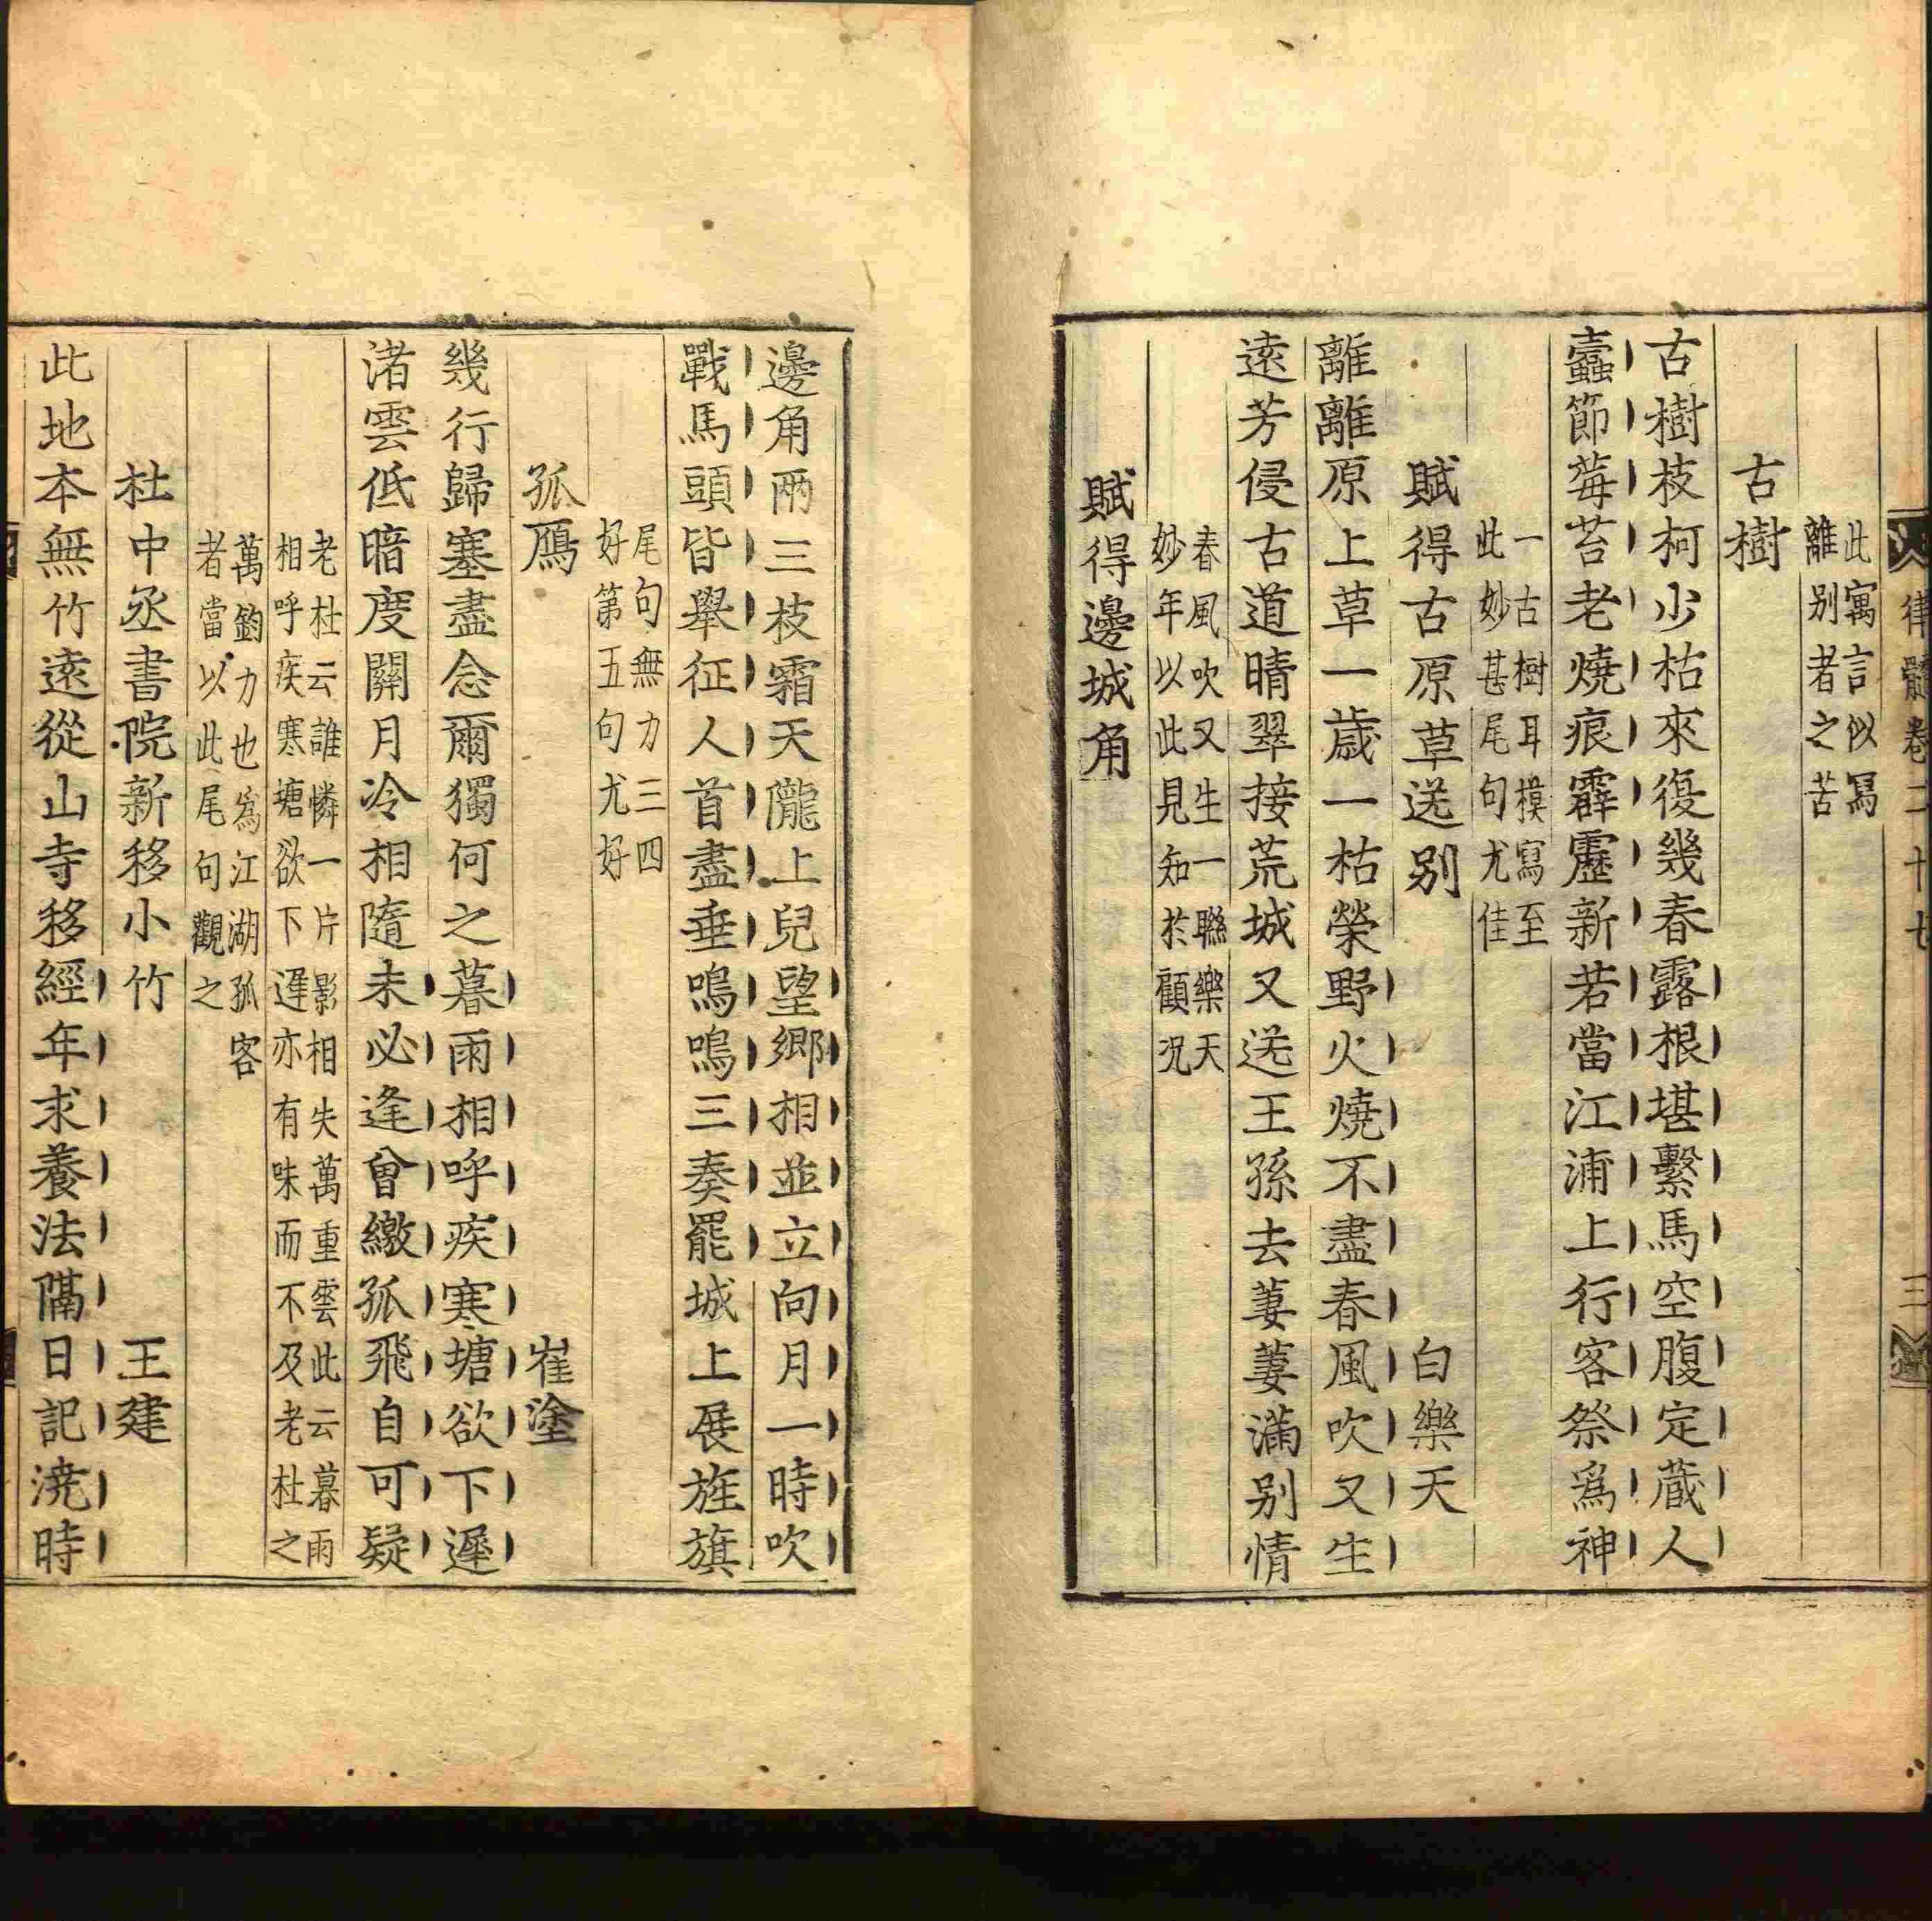 律髓卷二十七
三
此寓言似寫
離别者之苦
古樹
古樹枝柯少枯來復幾春露根堪繫馬空腹定藏人
蠧節莓苔老燒痕霹靂新若當江浦上行客祭爲神
一古樹耳摸寫至
此妙甚尾句尤佳
賦得古原草送别 白樂天
離離原上草一歲一枯榮野火燒不盡春風吹又生
遠芳侵古道晴翠接荒城又送王孫去萋萋滿别情
春風吹又生一聯樂天
妙年以此見知於顧况
賦得邊城角
邊角兩三枝霜天隴上兒望鄉相並立向月一時吹
戰馬頭皆舉征人首盡垂嗚嗚三奏罷城上展旌旗
尾句無力三四
好第五句尤好
孤鴈 崔塗
幾行歸塞盡念爾獨何之暮雨相呼疾寒塘欲下遲
渚雲低暗度關月冷相隨未必逢曾繳孤飛自可疑
老杜云誰憐一片影相失萬重雲此云暮雨
相呼疾寒塘欲下遲亦有味而不及老杜之
萬鈞力也爲江湖孤客
者當以此尾句觀之
杜中丞書院新移小竹 王建
此地本無竹遠從山寺移經年求養法隔日記澆時